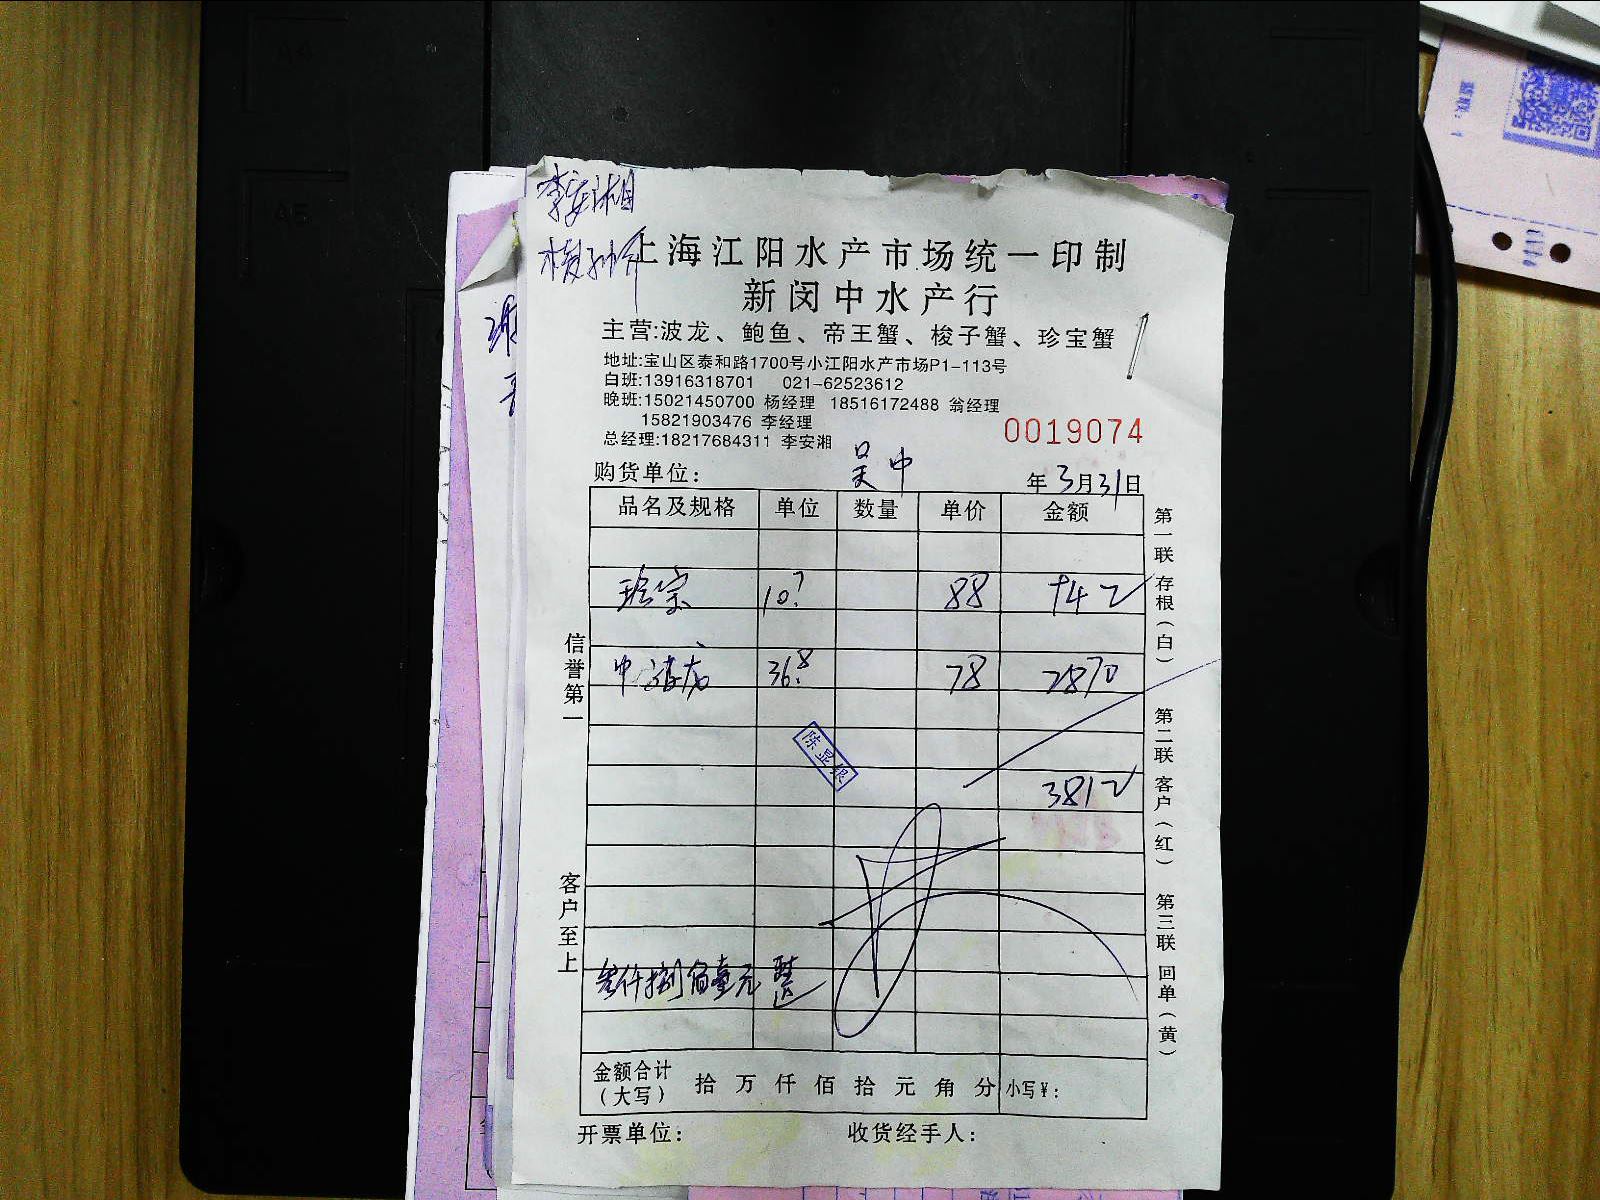 李安湘
梭子蟹
上海江阳水产市场统一印制
新闵中水产行
主营:波龙、鲍鱼、帝王蟹、梭子蟹、珍宝蟹
地址:宝山区泰和路1700号小江阳水产市场P1-113号
白班:13916318701 021-62523612
晚班:15021450700 杨经理 18516172488 翁经理
15821903476 李经理
总经理:18217684311 李安湘
0019074
购货单位: 吴中
年3月31日
品名及规格 单位 数量 单价 金额
珍宝 10.7 88 942
中波龙 36.8 78 2870
陈显根
3812
叁仟捌佰壹元
金额合计(大写) 拾 万 仟 佰 拾 元 角 分 小写¥:
开票单位: 收货经手人:
信誉第一
客户至上
第一联 存根(白)
第二联 客户(红)
第三联 回单(黄)
A4
A5